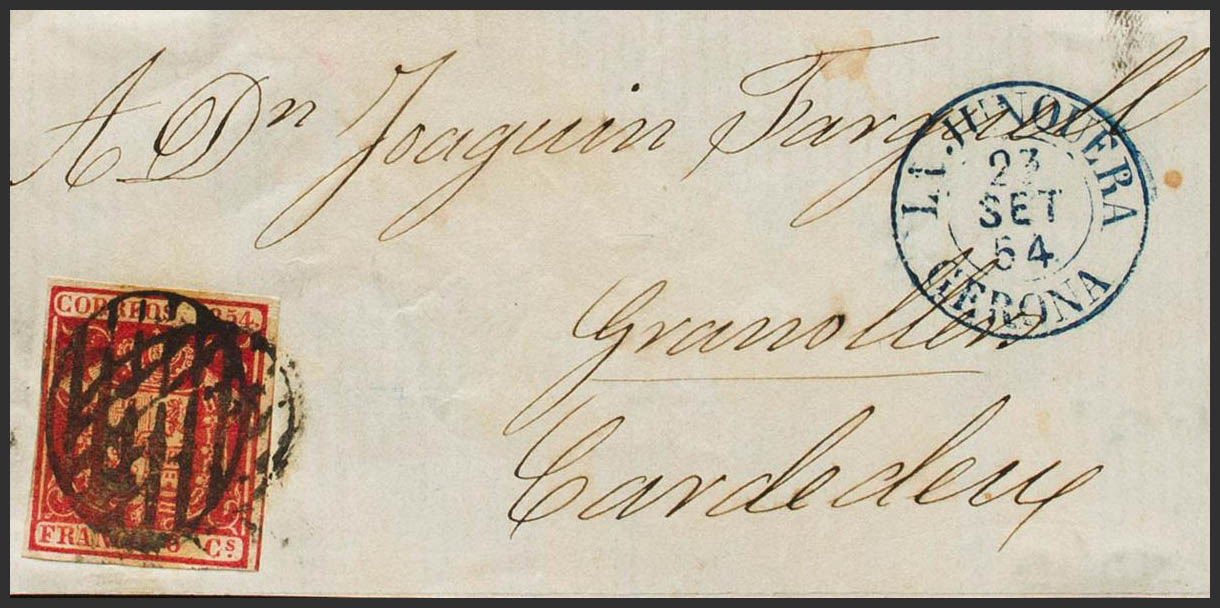 A Dn Joaquin Fargas
LA JUNQUERA
23
SET
54
GERONA
Granollers
Cardedeu
CORREOS 1854.
FRANCO 6 Cs.